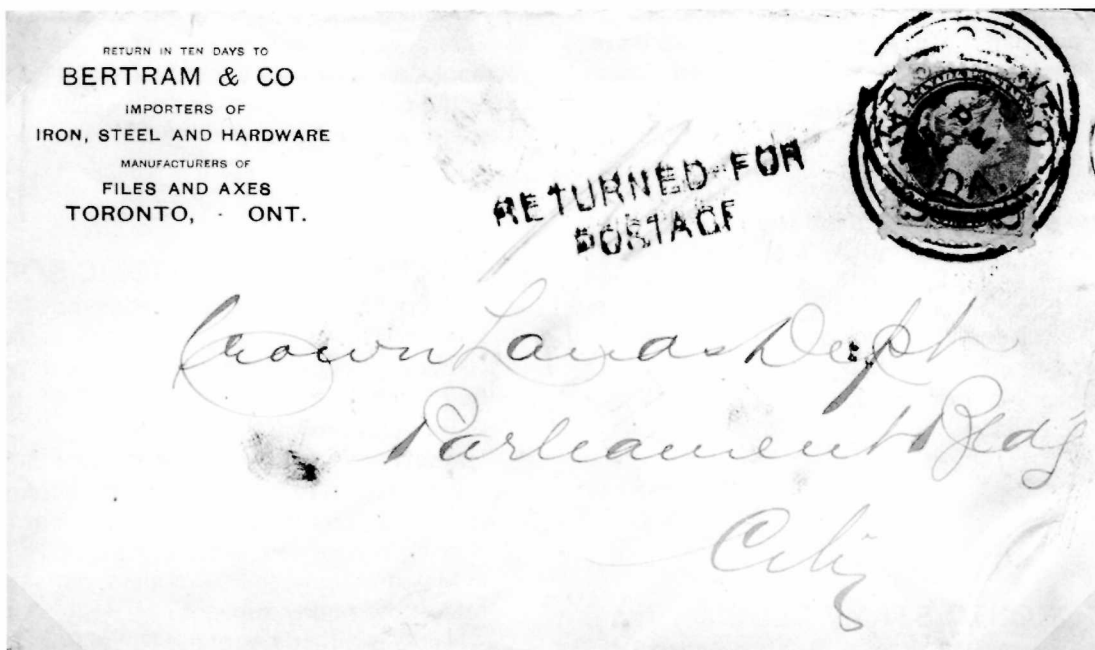 RETURN IN TEN DAYS TO
BERTRAM & CO
IMPORTERS OF
IRON, STEEL AND HARDWARE
MANUFACTURERS OF
FILES AND AXES
TORONTO, - ONT.
RETURNED FOR
POSTAGE
Crown Lands Dept
Parliament Bldg
City